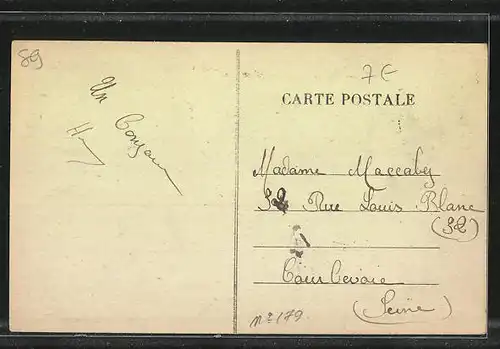 89
7€
Un
Bonjour
CARTE POSTALE
Madame Maccaby
32 Rue Louis Blanc
(32)
Courbevoie
(Seine)
n° 179